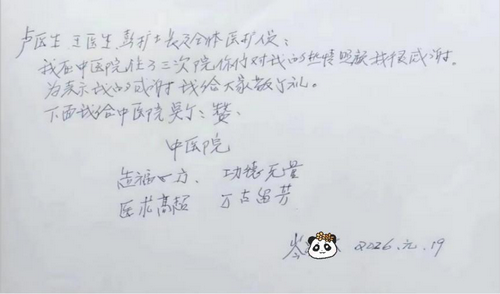 卢医生 王医生 彭护士长及全体医护人员：
我在中医院住了三次院你们对我的热情照顾我很感谢。
为表示我的感谢我给大家敬个礼。
下面我给中医院莫尔：赞：
中医院
造福一方、功德无量
医术高超 万古留芳
2026.元.19